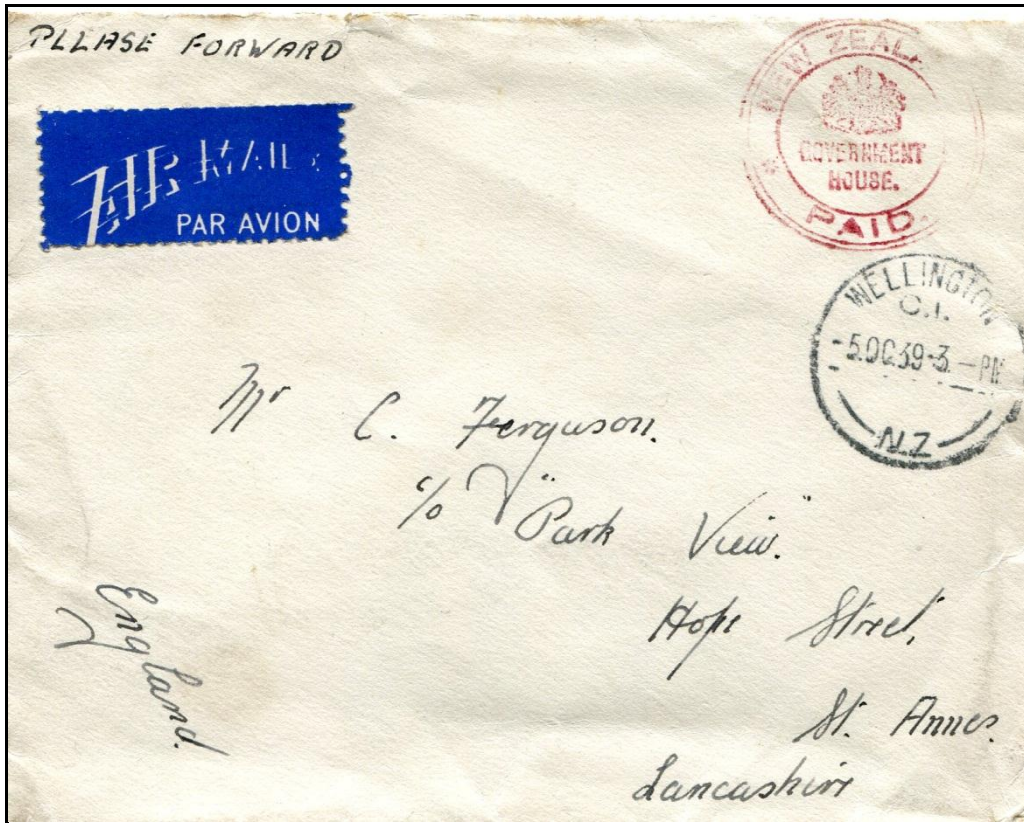 PLEASE FORWARD
AIR MAIL
PAR AVION
NEW ZEALA
GOVERNMENT
HOUSE.
PAID.
WELLINGTON
C.1.
-5 OC 39-3 - PM
N.Z
Mr C. Ferguson.
c/o "Park View".
Hope Street,
St. Annes.
Lancashire
England.